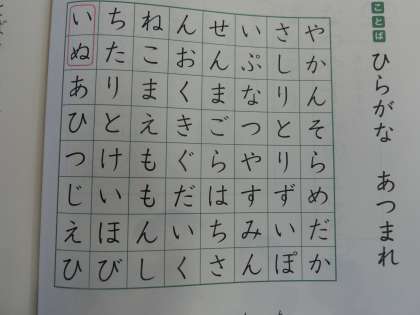 ことば
ひらがな あつまれ
いちねんせいさや
ぬたこおんぷしか
ありまくまなりん
ひとえきごつとそ
つけもぐらやりら
じいもだはすずめ
えほんいちみいだ
ひびしくさんぽか